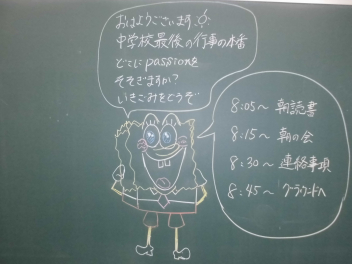 おはようございます
中学校最後の行事の本番
どこにpassionを
そそぎますか?
いきごみをどうぞ
8:05~ 朝読書
8:15~ 朝の会
8:30~ 連絡事項
8:45~ グラウンドへ